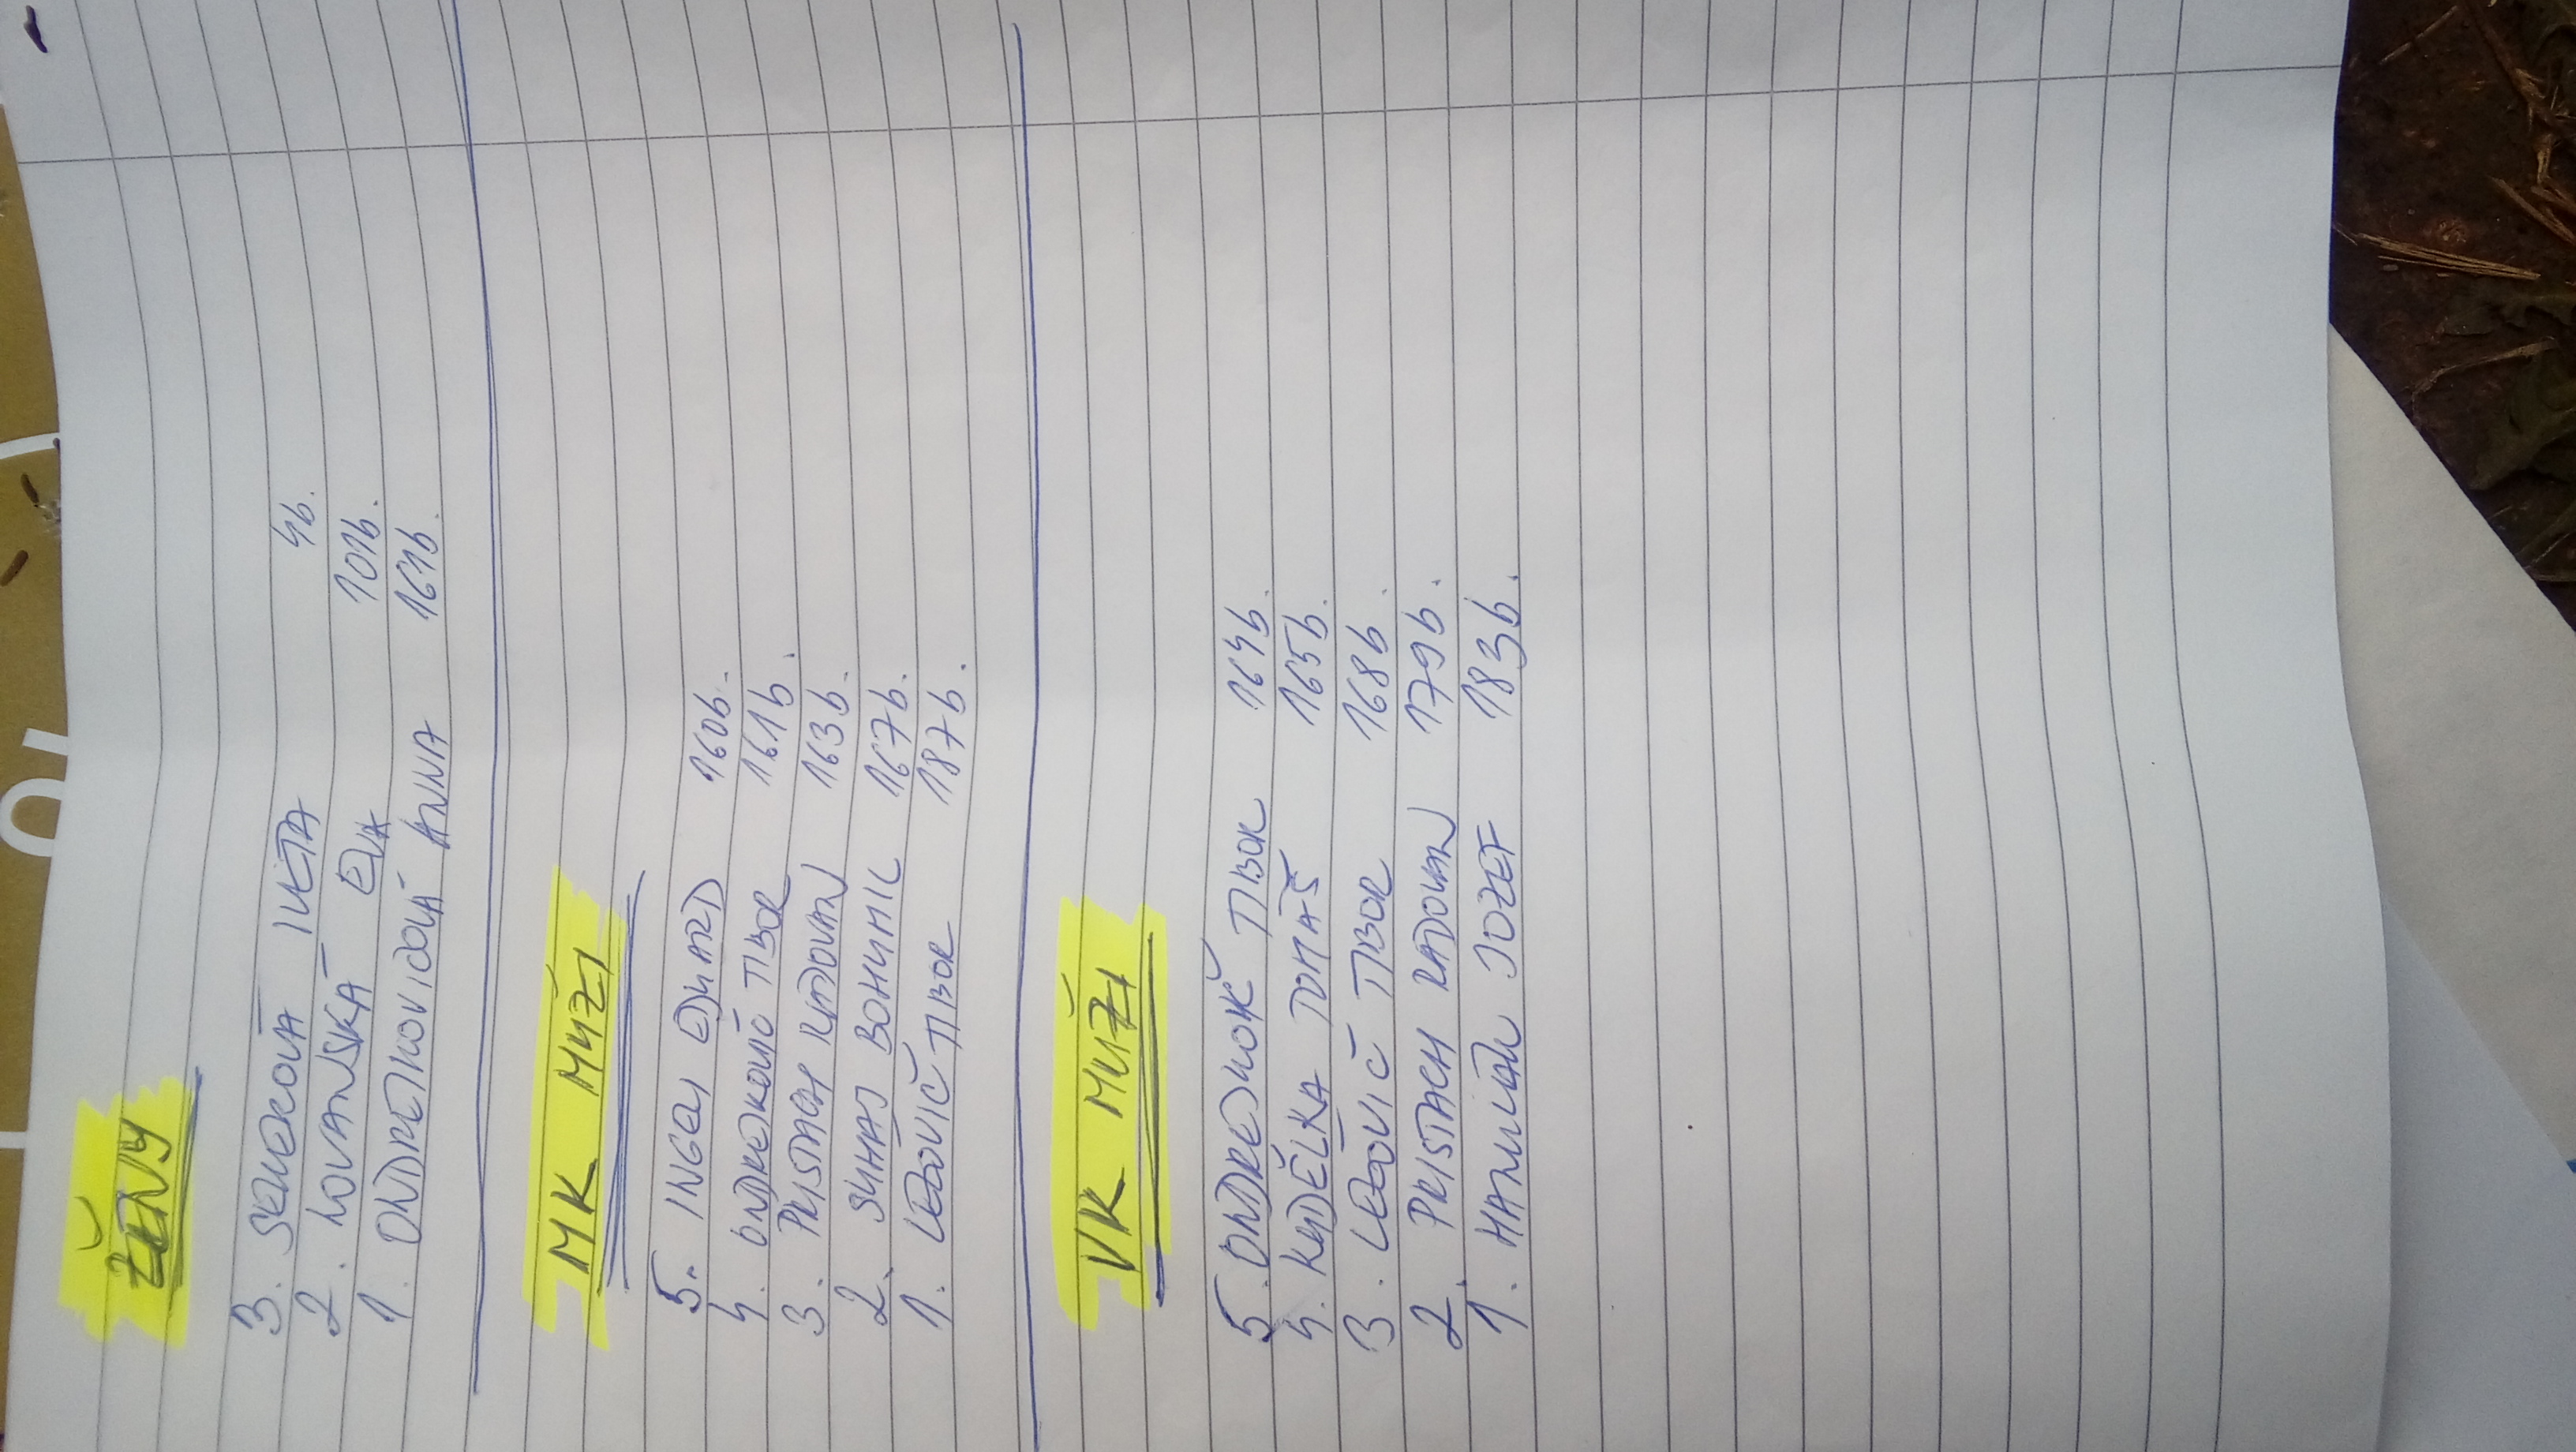 ŽENY
3. SEKEROVÁ IVETA 4b.
2. NOVANSKÁ EVA 101b.
1. ONDREJKOVIČOVÁ ANNA 161b.
MK MUŽI
5. INGELI EDUARD 160b.
4. ONDREJKOVIČ TIBOR 161b.
3. PRISTACH RADOVAN 163b.
2. SUHAJ BOHUMIL 167b.
1. LEDOVIČ TIBOR 187b.
VK MUŽI
5. TIBOR 164b.
4. KUDĚLKA TOMAŠ 165b.
3. LEDOVIČ TIBOR 168b.
2. PRISTACH RADOVAN 179b.
1. JOZEF 183b.